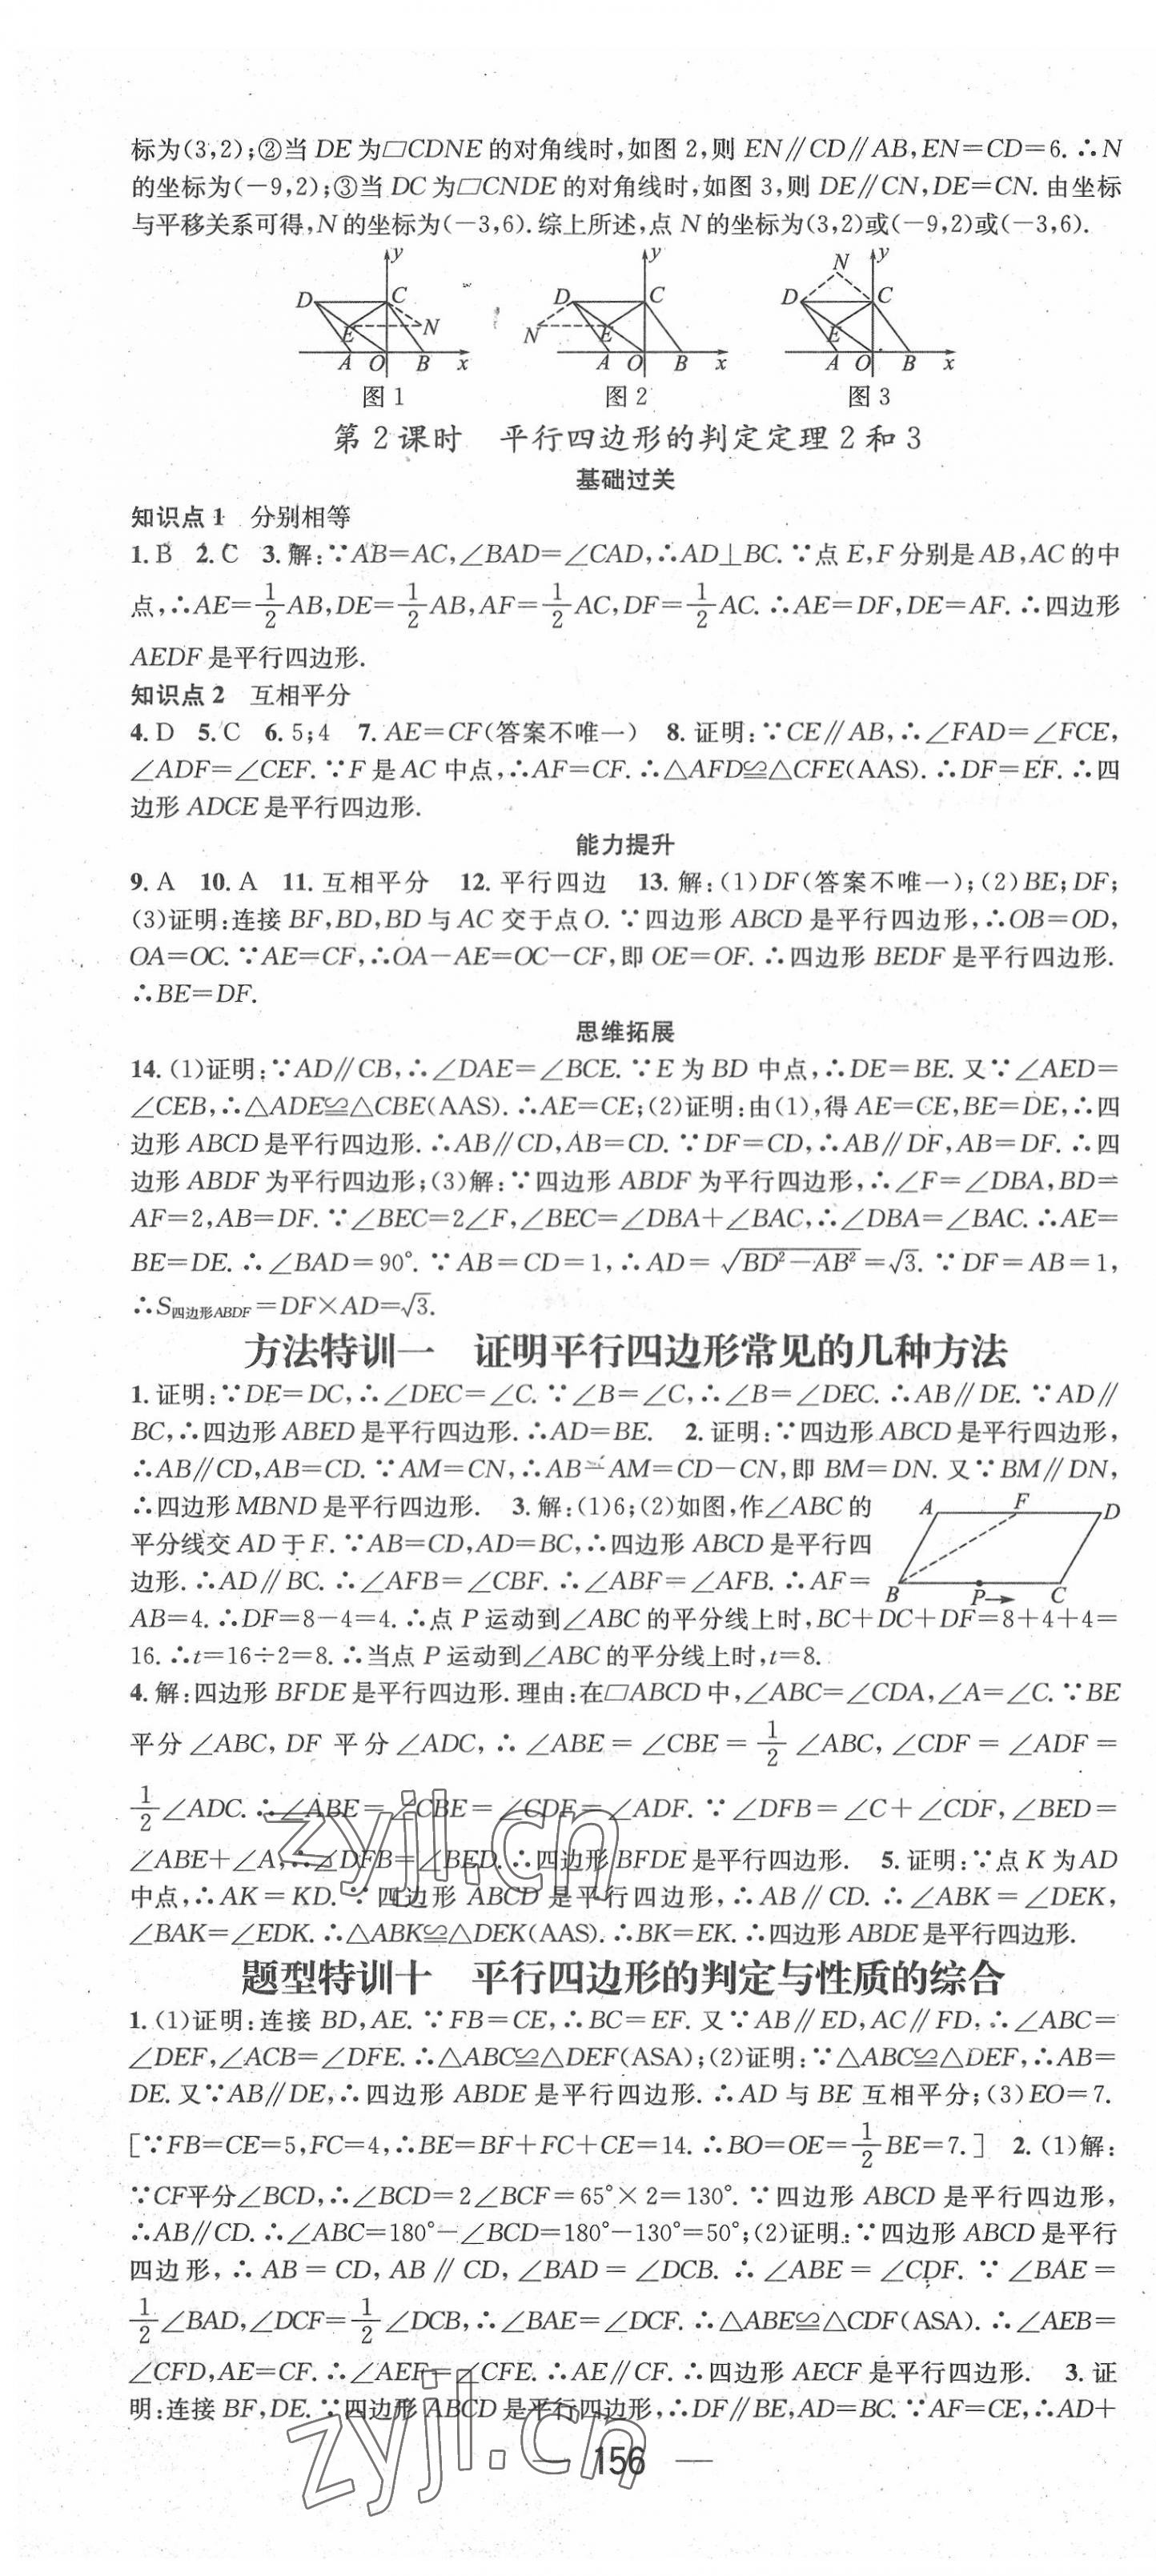 标为(3,2);②当 DE 为▱CDNE 的对角线时,如图 2,则 EN∥CD∥AB,EN=CD=6. ∴N
的坐标为(-9,2);③当 DC 为▱CNDE 的对角线时,如图 3,则 DE∥CN,DE=CN. 由坐标
与平移关系可得,N 的坐标为(-3,6). 综上所述,点 N 的坐标为(3,2)或(-9,2)或(-3,6).
y D C E N A O B x
y D C N E A O B x
y N D C E A O B x
图 1 图 2 图 3
第 2 课时 平行四边形的判定定理 2 和 3
基础过关
知识点 1 分别相等
1. B 2. C 3. 解:∵AB=AC,∠BAD=∠CAD,∴AD⊥BC. ∵点 E,F 分别是 AB,AC 的中
点,∴AE=1/2 AB,DE=1/2 AB,AF=1/2 AC,DF=1/2 AC. ∴AE=DF,DE=AF. ∴四边形
AEDF 是平行四边形.
知识点 2 互相平分
4. D 5. C 6. 5;4 7. AE=CF(答案不唯一) 8. 证明:∵CE∥AB,∴∠FAD=∠FCE,
∠ADF=∠CEF. ∵F 是 AC 中点,∴AF=CF. ∴△AFD≌△CFE(AAS). ∴DF=EF. ∴四
边形 ADCE 是平行四边形.
能力提升
9. A 10. A 11. 互相平分 12. 平行四边 13. 解:(1)DF(答案不唯一);(2)BE;DF;
(3)证明:连接 BF,BD,BD 与 AC 交于点 O. ∵四边形 ABCD 是平行四边形,∴OB=OD,
OA=OC. ∵AE=CF,∴OA-AE=OC-CF,即 OE=OF. ∴四边形 BEDF 是平行四边形.
∴BE=DF.
思维拓展
14. (1)证明:∵AD∥CB,∴∠DAE=∠BCE. ∵E 为 BD 中点,∴DE=BE. 又∵∠AED=
∠CEB,∴△ADE≌△CBE(AAS). ∴AE=CE;(2)证明:由(1),得 AE=CE,BE=DE,∴四
边形 ABCD 是平行四边形. ∴AB∥CD,AB=CD. ∵DF=CD,∴AB∥DF,AB=DF. ∴四
边形 ABDF 为平行四边形;(3)解:∵四边形 ABDF 为平行四边形,∴∠F=∠DBA,BD=
AF=2,AB=DF. ∵∠BEC=2∠F,∠BEC=∠DBA+∠BAC,∴∠DBA=∠BAC. ∴AE=
BE=DE. ∴∠BAD=90°. ∵AB=CD=1,∴AD=√(BD²-AB²)=√3. ∵DF=AB=1,
∴S四边形ABDF=DF×AD=√3.
方法特训一 证明平行四边形常见的几种方法
1. 证明:∵DE=DC,∴∠DEC=∠C. ∵∠B=∠C,∴∠B=∠DEC. ∴AB∥DE. ∵AD∥
BC,∴四边形 ABED 是平行四边形. ∴AD=BE. 2. 证明:∵四边形 ABCD 是平行四边形,
∴AB∥CD,AB=CD. ∵AM=CN,∴AB-AM=CD-CN,即 BM=DN. 又∵BM∥DN,
∴四边形 MBND 是平行四边形. 3. 解:(1)6;(2)如图,作∠ABC 的
平分线交 AD 于 F. ∵AB=CD,AD=BC,∴四边形 ABCD 是平行四
边形. ∴AD∥BC. ∴∠AFB=∠CBF. ∴∠ABF=∠AFB. ∴AF=
A F D B P C
AB=4. ∴DF=8-4=4. ∴点 P 运动到∠ABC 的平分线上时,BC+DC+DF=8+4+4=
16. ∴t=16÷2=8. ∴当点 P 运动到∠ABC 的平分线上时,t=8.
4. 解:四边形 BFDE 是平行四边形. 理由:在▱ABCD 中,∠ABC=∠CDA,∠A=∠C. ∵BE
平分∠ABC, DF 平分∠ADC, ∴∠ABE=∠CBE=1/2∠ABC, ∠CDF=∠ADF=
1/2∠ADC. ∴∠ABE=∠CBE=∠CDF=∠ADF. ∵∠DFB=∠C+∠CDF,∠BED=
∠ABE+∠A,∴∠DFB=∠BED. ∴四边形 BFDE 是平行四边形. 5. 证明:∵点 K 为 AD
中点,∴AK=KD. ∵四边形 ABCD 是平行四边形,∴AB∥CD. ∴∠ABK=∠DEK,
∠BAK=∠EDK. ∴△ABK≌△DEK(AAS). ∴BK=EK. ∴四边形 ABDE 是平行四边形.
zyjl.cn
题型特训十 平行四边形的判定与性质的综合
1. (1)证明:连接 BD,AE. ∵FB=CE,∴BC=EF. 又∵AB∥ED,AC∥FD,∴∠ABC=
∠DEF,∠ACB=∠DFE. ∴△ABC≌△DEF(ASA);(2)证明:∵△ABC≌△DEF,∴AB=
DE. 又∵AB∥DE,∴四边形 ABDE 是平行四边形. ∴AD 与 BE 互相平分;(3)EO=7.
[∵FB=CE=5,FC=4,∴BE=BF+FC+CE=14. ∴BO=OE=1/2 BE=7.] 2. (1)解:
∵CF平分∠BCD,∴∠BCD=2∠BCF=65°×2=130°. ∵四边形 ABCD 是平行四边形,
∴AB∥CD. ∴∠ABC=180°-∠BCD=180°-130°=50°;(2)证明:∵四边形 ABCD 是平行
四边形,∴AB=CD, AB∥CD, ∠BAD=∠DCB. ∴∠ABE=∠CDF. ∵∠BAE=
1/2∠BAD,∠DCF=1/2∠DCB,∴∠BAE=∠DCF. ∴△ABE≌△CDF(ASA). ∴∠AEB=
∠CFD,AE=CF. ∴∠AEF=∠CFE. ∴AE∥CF. ∴四边形 AECF 是平行四边形. 3. 证
明:连接 BF,DE. ∵四边形 ABCD 是平行四边形,∴DF∥BE,AD=BC. ∵AF=CE,∴AD+
zyjl.cn
— 156 —